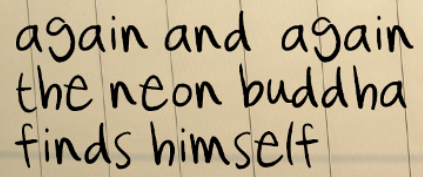 again and again
the neon buddha
finds himself